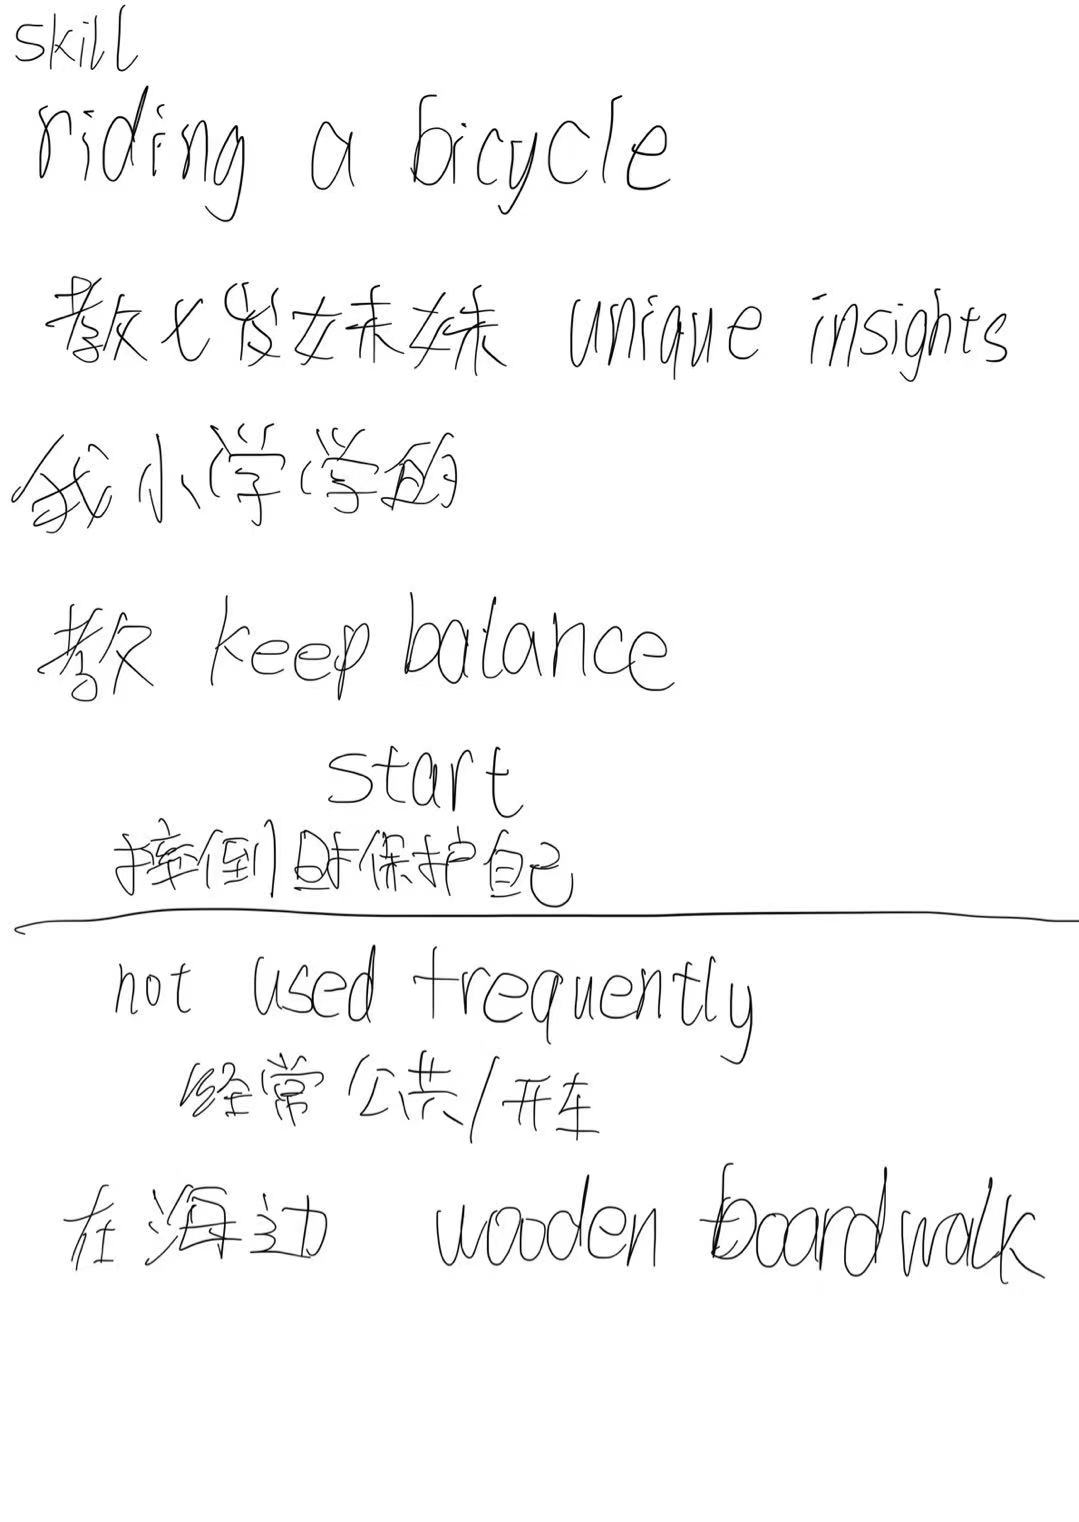 skill
riding a bicycle
教七岁妹妹 unique insights
我小学学的
教 keep balance
start
摔倒时保护自己
not used frequently
经常公共/开车
在海边 wooden boardwalk